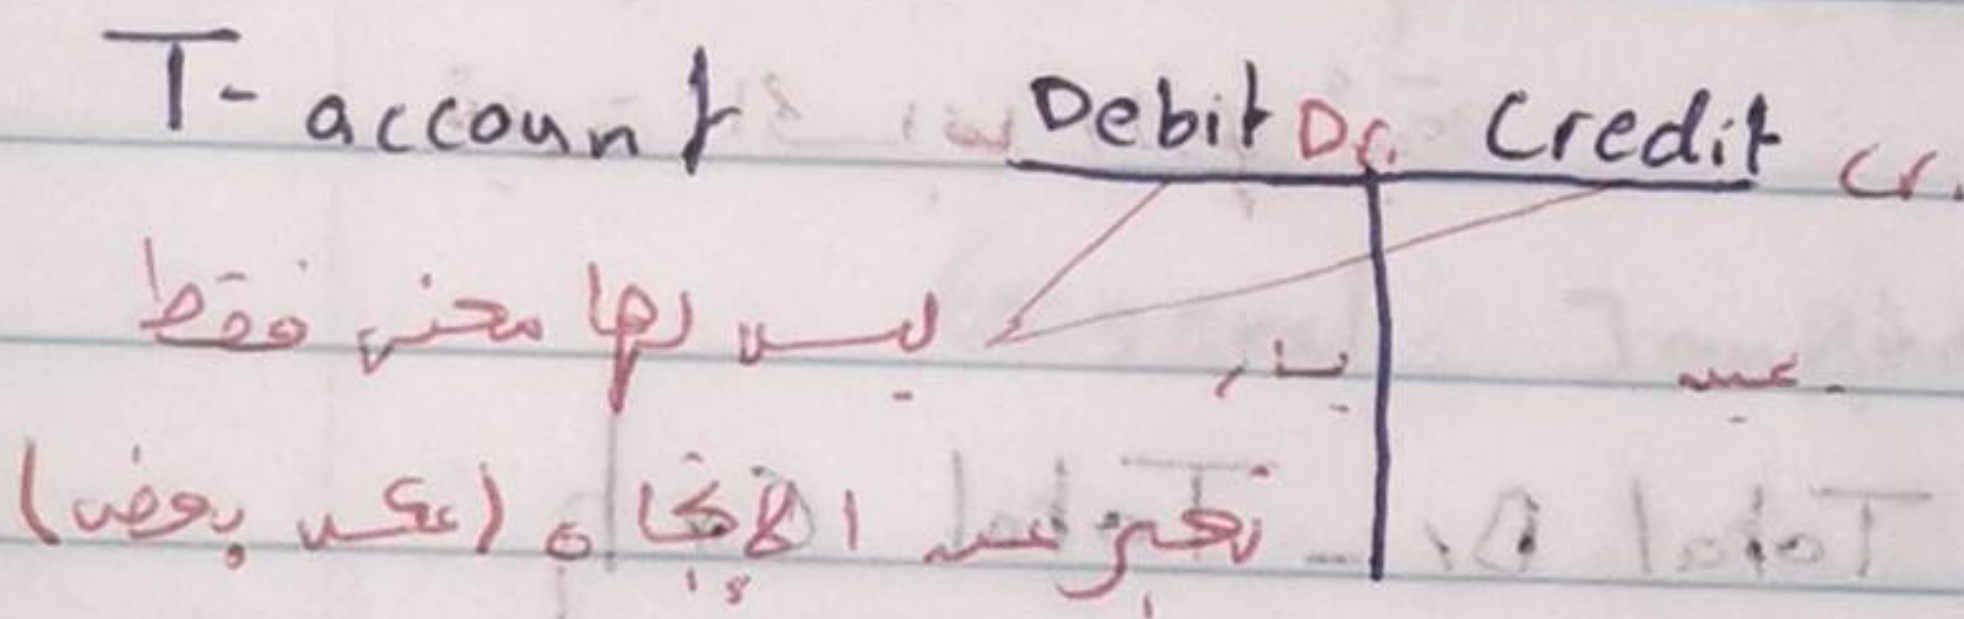 T-account Debit Dr. Credit Cr.
ليس لها معنى فقط
يسار يمين
تعبر عن الاتجاه (عكس بعض)